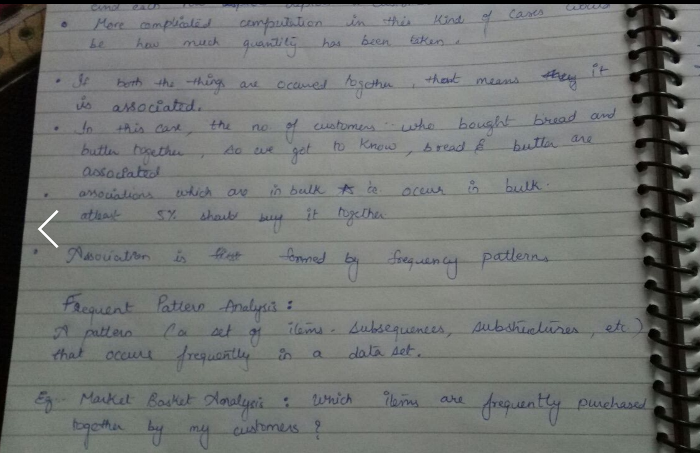 and each
• More complicated computation in this kind of cases would
be how much quantity has been taken.
• If both the things are occured together, that means it
is associated.
• In this case, the no of customers who bought bread and
butter together, so we got to know, bread & butter are
associated
• associations which are in bulk ie occur in bulk.
atleast 5% should buy it together
• Association is first formed by frequency patterns
Frequent Pattern Analysis:
A pattern (a set of items, subsequences, substructures, etc)
that occurs frequently in a data set.
Eg. Market Basket Analysis: Which items are frequently purchased
together by my customers?